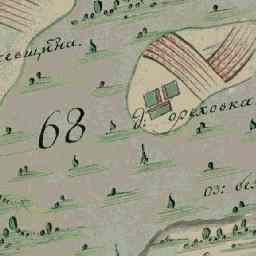 евщина.
68
д: ореховка
оз: бе